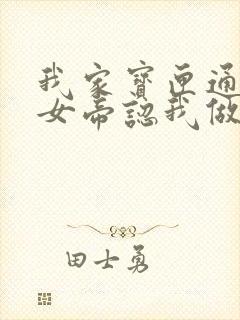 我家寶匣通
女帝認我做
田士勇